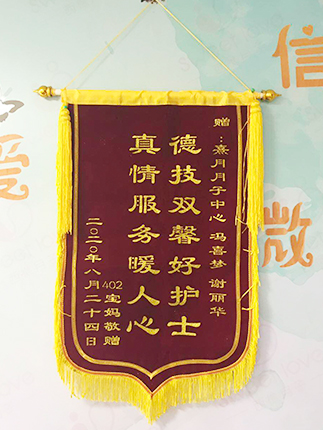 赠：熹月月子中心 冯喜梦 谢丽华
德技双馨好护士
真情服务暖人心
402宝妈敬赠
二〇二〇年八月二十四日
信
微
爱